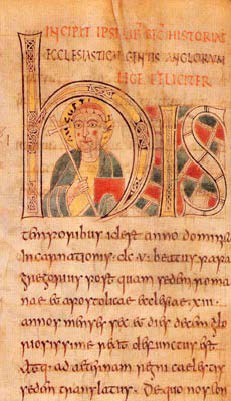 INCIPIT IPSIUS LIB SEC HISTORIAE
ECCLESIASTICAE GENTIS ANGLORUM
LEGE FELICITER
his
temporibus id est anno domini
Incarnationis . dc . v . beatus papa
gregorius post quam sedem roma
nae et apostolicae ecclesiae . xiii .
annos menses sex et dies decem glo
riosissime rexit defunctus est
Atq: ad aeternam regni caelestis
sedem translatus . De quo nos con